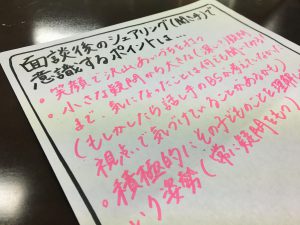 面談後のシェアリング(Mtg)で
意識するポイントは…
・笑顔で沢山あいづちを打つ
・小さな疑問から大きな深い疑問
まで、気になったことは何でも聞いてみる!
(もしかしたら話し手のBSが考えていない
視点で気づけていることがあるかも)
・積極的にその子どものことを理解
いう姿勢(常に疑問を持つ)